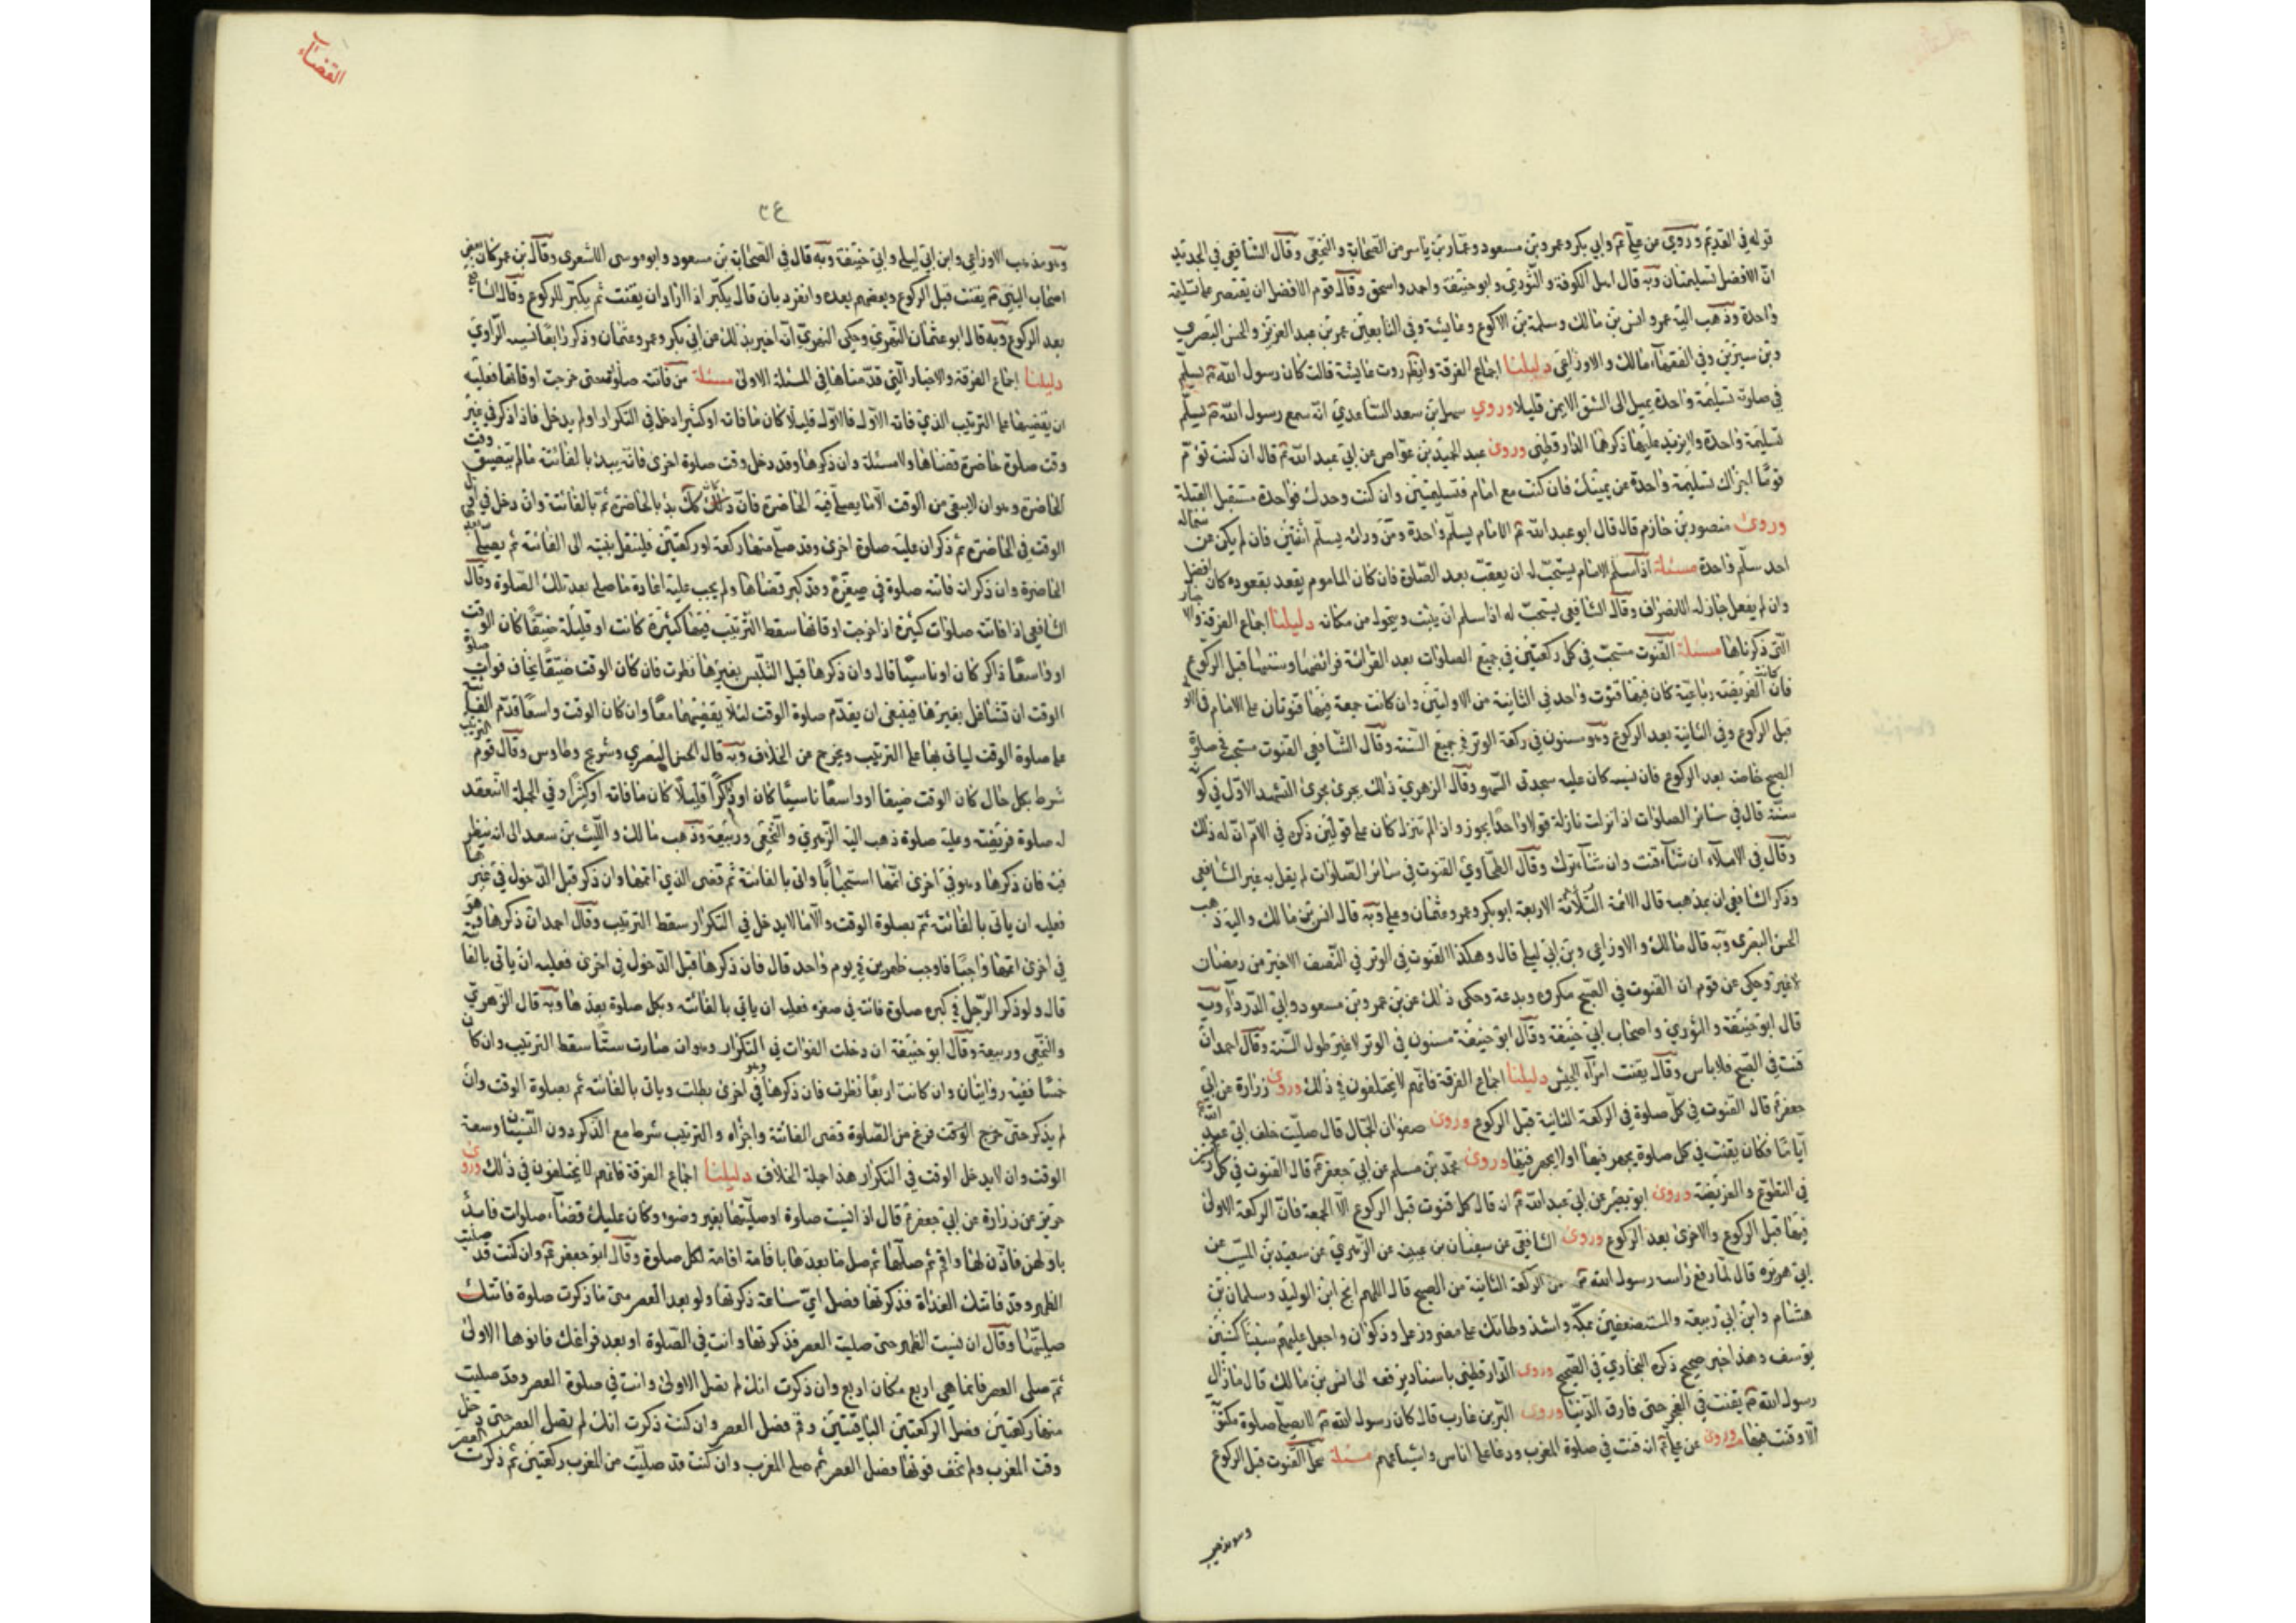 قوله في القديم وروي عن علي ع وابي بكر وعمر وبن مسعود وعمار بن ياسر من الصحابة والنخعي وقال الشافعي في الجديد
ان الافضل تسليمتان وبه قال اهل الكوفة والثوري وابو حنيفة واحمد واسحق وقال قوم الافضل ان يقتصر على تسليمة
واحدة وذهب اليه عمر وانس بن مالك وسلمة بن الاكوع وعايشة وفي التابعين عمر بن عبد العزيز والحسن البصري
وبن سيرين وفي الفقهاء مالك والاوزاعي دليلنا اجماع الفرقة وايضا روت عايشة قالت كان رسول الله ص يسلم
في صلوته تسليمة واحدة يميل الى الشق الايمن قليلا وروي سهل بن سعد الساعدي انه سمع رسول الله ص يسلم
تسليمة واحدة ولا يزيد عليها ذكرهما الدارقطني وروى عبد الحميد بن عواض عن ابي عبد الله ع قال ان كنت تؤم
قوما اجزاك تسليمة واحدة عن يمينك فان كنت مع امام فتسليمتين وان كنت وحدك فواحدة مستقبل القبلة
وروى منصور بن حازم قال قال ابو عبد الله ع الامام يسلم واحدة ومن ورائه يسلم اثنتين فان لم يكن عن شماله
احد سلم واحدة مسئلة اذا سلم الامام يستحب له ان يعقب بعد الصلوة فان كان الماموم يقعد بقعوده كان افضل
وان لم يفعل جاز له الانصراف وقال الشافعي يستحب له اذا سلم ان يثبت ويتحول من مكانه دليلنا اجماع الفرقة والاخبار
التي ذكرناها مسئلة القنوت مستحب في كل ركعتين في جميع الصلوات بعد القرائة فرائضها وسننها قبل الركوع
فان كانت الفريضة رباعية كان فيها قنوت واحد في الثانية من الاوليتين وان كانت جمعة فيها قنوتان على الامام في الاولى
قبل الركوع وفي الثانية بعد الركوع وهو مسنون في ركعة الوتر في جميع السنة وقال الشافعي القنوت مستحب في صلوة
الصبح خاصة بعد الركوع فان نسيه كان عليه سجدتي السهو وقال الزهري ذلك يجري مجرى التشهد الاول في كونه
سنة قال في سائر الصلوات اذا نزلت نازلة قولا واحدا يجوز واذا لم تنزل كان على قولين ذكره في الام ان له ذلك
وقال في الاملاء ان شاء قنت وان شاء ترك وقال الطحاوي القنوت في سائر الصلوات لم يقل به غير الشافعي
وذكر الشافعي ان بمذهبه قال الائمة الاربعة ابو بكر وعمر وعثمان وعلي وبه قال انس بن مالك واليه ذهب
الحسن البصري وبه قال مالك والاوزاعي وبن ابي ليلى قال وهكذا القنوت في الوتر في النصف الاخير من رمضان
لا غير وحكى عن قوم ان القنوت في الصبح مكروه وبدعة وحكي ذلك عن بن عمر وبن مسعود وابي الدرداء وبه
قال ابو حنيفة والثوري واصحاب ابي حنيفة وقال ابو حنيفة مسنون في الوتر لا غير طول السنة وقال احمد ان
قنت في الصبح فلا باس وقال يقنت امراء الجيش دليلنا اجماع الفرقة فانهم لا يختلفون في ذلك وروى زرارة عن ابي
جعفر ع قال القنوت في كل صلوة في الركعة الثانية قبل الركوع وروى صفوان الجمال قال صليت خلف ابي عبد الله ع
اياما فكان يقنت في كل صلوة يجهر فيها او لا يجهر فيها وروى محمد بن مسلم عن ابي جعفر ع قال القنوت في كل ركعتين
في التطوع والفريضة وروى ابو بصير عن ابي عبد الله ع انه قال كل قنوت قبل الركوع الا الجمعة فان الركعة الاولى
فيها قبل الركوع والاخرى بعد الركوع وروى الشافعي عن سفيان بن عيينة عن الزهري عن سعيد بن المسيب عن
ابي هريرة قال لما رفع راسه رسول الله ص من الركعة الثانية من الصبح قال اللهم انج ابن الوليد وسلمان بن
هشام وابن ابي ربيعة والمستضعفين بمكة واشدد وطاتك على مضر ورعل وذكوان واجعل عليهم سنينا كسنين
يوسف وهذا خبر صحيح ذكره البخاري في الصحيح وروى الدارقطني باسناد يرفعه الى انس بن مالك قال ما زال
رسول الله ص يقنت في الفجر حتى فارق الدنيا وروى البر بن عازب قال كان رسول الله ص لا يصلي صلوة مكتوبة
الا وقنت فيها وروى عن علي ع انه قنت في صلوة المغرب ودعا على اناس واشياعهم مسئلة محل القنوت قبل الركوع
وهو مذهب
القضاء
وهو مذهب الاوزاعي وابن ابي ليلى وابي حنيفة وبه قال في الصحابة بن مسعود وابو موسى الاشعري وقال بن عمر كان بعض
اصحاب النبي ص يقنت قبل الركوع وبعضهم بعده وانفرد بان قال يكبر اذا اراد ان يقنت ثم يكبر للركوع وقال الشافعي
بعد الركوع وبه قال ابو عثمان النهدي وحكى النهدي انه اخير بذلك عن ابي بكر وعمر وعثمان وذكر رابعا نسيه الراوي
دليلنا اجماع الفرقة والاخبار التي قدمناها في المسئلة الاولى مسئلة من فاتته صلوة حتى خرجت اوقاتها فعليه
ان يقضيها على الترتيب الذي فاته الاول فالاول قليلا كان ما فاته او كثيرا دخل في التكرار او لم يدخل فاذا ذكر في غير
وقت صلوة حاضرة قضاها ولا مسئلة وان ذكرها وقد دخل وقت صلوة اخرى فانه يبدء بالفائتة ما لم يتضيق وقت
الحاضرة وهو ان لا يبقى من الوقت الا ما يصلي فيه الحاضرة فان كان ذلك كذلك بدء بالحاضرة ثم بالفائتة وان دخل في اول
الوقت في الحاضرة ثم ذكر ان عليه صلوة اخرى وقد صلى منها ركعة او ركعتين فلينقل نيته الى الفائتة ثم يصلي بعد
الحاضرة وان ذكر انه فاتته صلوة في صغره وقد كبر قضاها ولم يجب عليه اعادة ما صلى بعد تلك الصلوة وقال
الشافعي اذا فاتته صلوات كثيرة اذا خرجت اوقاتها سقط الترتيب فيها كثيرة كانت او قليلة ضيقا كان الوقت
او واسعا ذاكرا كان او ناسيا قال وان ذكرها قبل التلبس بغيرها نظرت فان كان الوقت ضيقا يخاف فوات صلوة
الوقت ان تشاغل بغيرها فينبغي ان يقدم صلوة الوقت لئلا يقضيهما معا وان كان الوقت واسعا قدم الفايتة
على صلوة الوقت لياتي بها على الترتيب ويخرج من الخلاف وبه قال الحسن البصري وشريح وطاوس وقال قوم الترتيب
شرط بكل حال كان الوقت ضيقا او واسعا ناسيا كان او ذاكرا قليلا كان ما فاته او كثيرا وفي الجملة لا تنعقد
له صلوة فريضة وعليه صلوة ذهب اليه الزهري والنخعي وربيعة وذهب مالك والليث بن سعد الى انه ينظر
فيه فان ذكرها وهو في اخرى اتمها استحبابا واتى بالفائتة ثم قضى الذي اتمها وان ذكر قبل الدخول في غيرها
فعليه ان ياتي بالفائتة ثم بصلوة الوقت والا ما لا يدخل في التكرار سقط الترتيب وقال احمد ان ذكرها وهو
في اخرى اتمها واجبا فاوجب ظهرين في يوم واحد قال فان ذكرها قبل الدخول في اخرى فعليه ان ياتي بالفائتة
قال ولو ذكر الرجل في كبره صلوة فاتته في صغره فعليه ان ياتي بالفائتة وبكل صلوة بعدها وبه قال الزهري
والنخعي وربيعة وقال ابو حنيفة ان دخلت الفوات في التكرار وهو ان صارت ستا سقط الترتيب وان كان
خمسا ففيه روايتان وان كانت اربعا نظرت فان ذكرها وهو في اخرى بطلت وياتي بالفائتة ثم بصلوة الوقت وان
لم يذكر حتى خرج الوقت فرغ من الصلوة قضى الفائتة واجزاه والترتيب شرط مع الذكر دون النسيان وسعة
الوقت وان لا يدخل الوقت في التكرار هذا جملة الخلاف دليلنا اجماع الفرقة فانهم لا يختلفون في ذلك وروى
حريز عن زرارة عن ابي جعفر ع قال اذا نسيت صلوة او صليتها بغير وضوء وكان عليك قضاء صلوات فابدأ
باولهن فاذن لها واقم ثم صلها ثم صل ما بعدها باقامة اقامة لكل صلوة وقال ابو جعفر ع وان كنت قد صليت
الظهر وقد فاتتك الغداة فذكرتها فصل اي ساعة ذكرتها ولو بعد العصر متى ما ذكرت صلوة فاتتك
صليتها وقال ان نسيت الظهر حتى صليت العصر فذكرتها وانت في الصلوة او بعد فراغك فانوها الاولى
ثم صلى العصر فانما هي اربع مكان اربع وان ذكرت انك لم تصل الاولى وانت في صلوة العصر وقد صليت
منها ركعتين فصل الركعتين الباقيتين وقم فصل العصر وان كنت ذكرت انك لم تصل العصر حتى دخل
وقت المغرب ولم تخف فوتها فصل العصر ثم صلى المغرب وان كنت قد صليت من المغرب ركعتين ثم ذكرت العصر